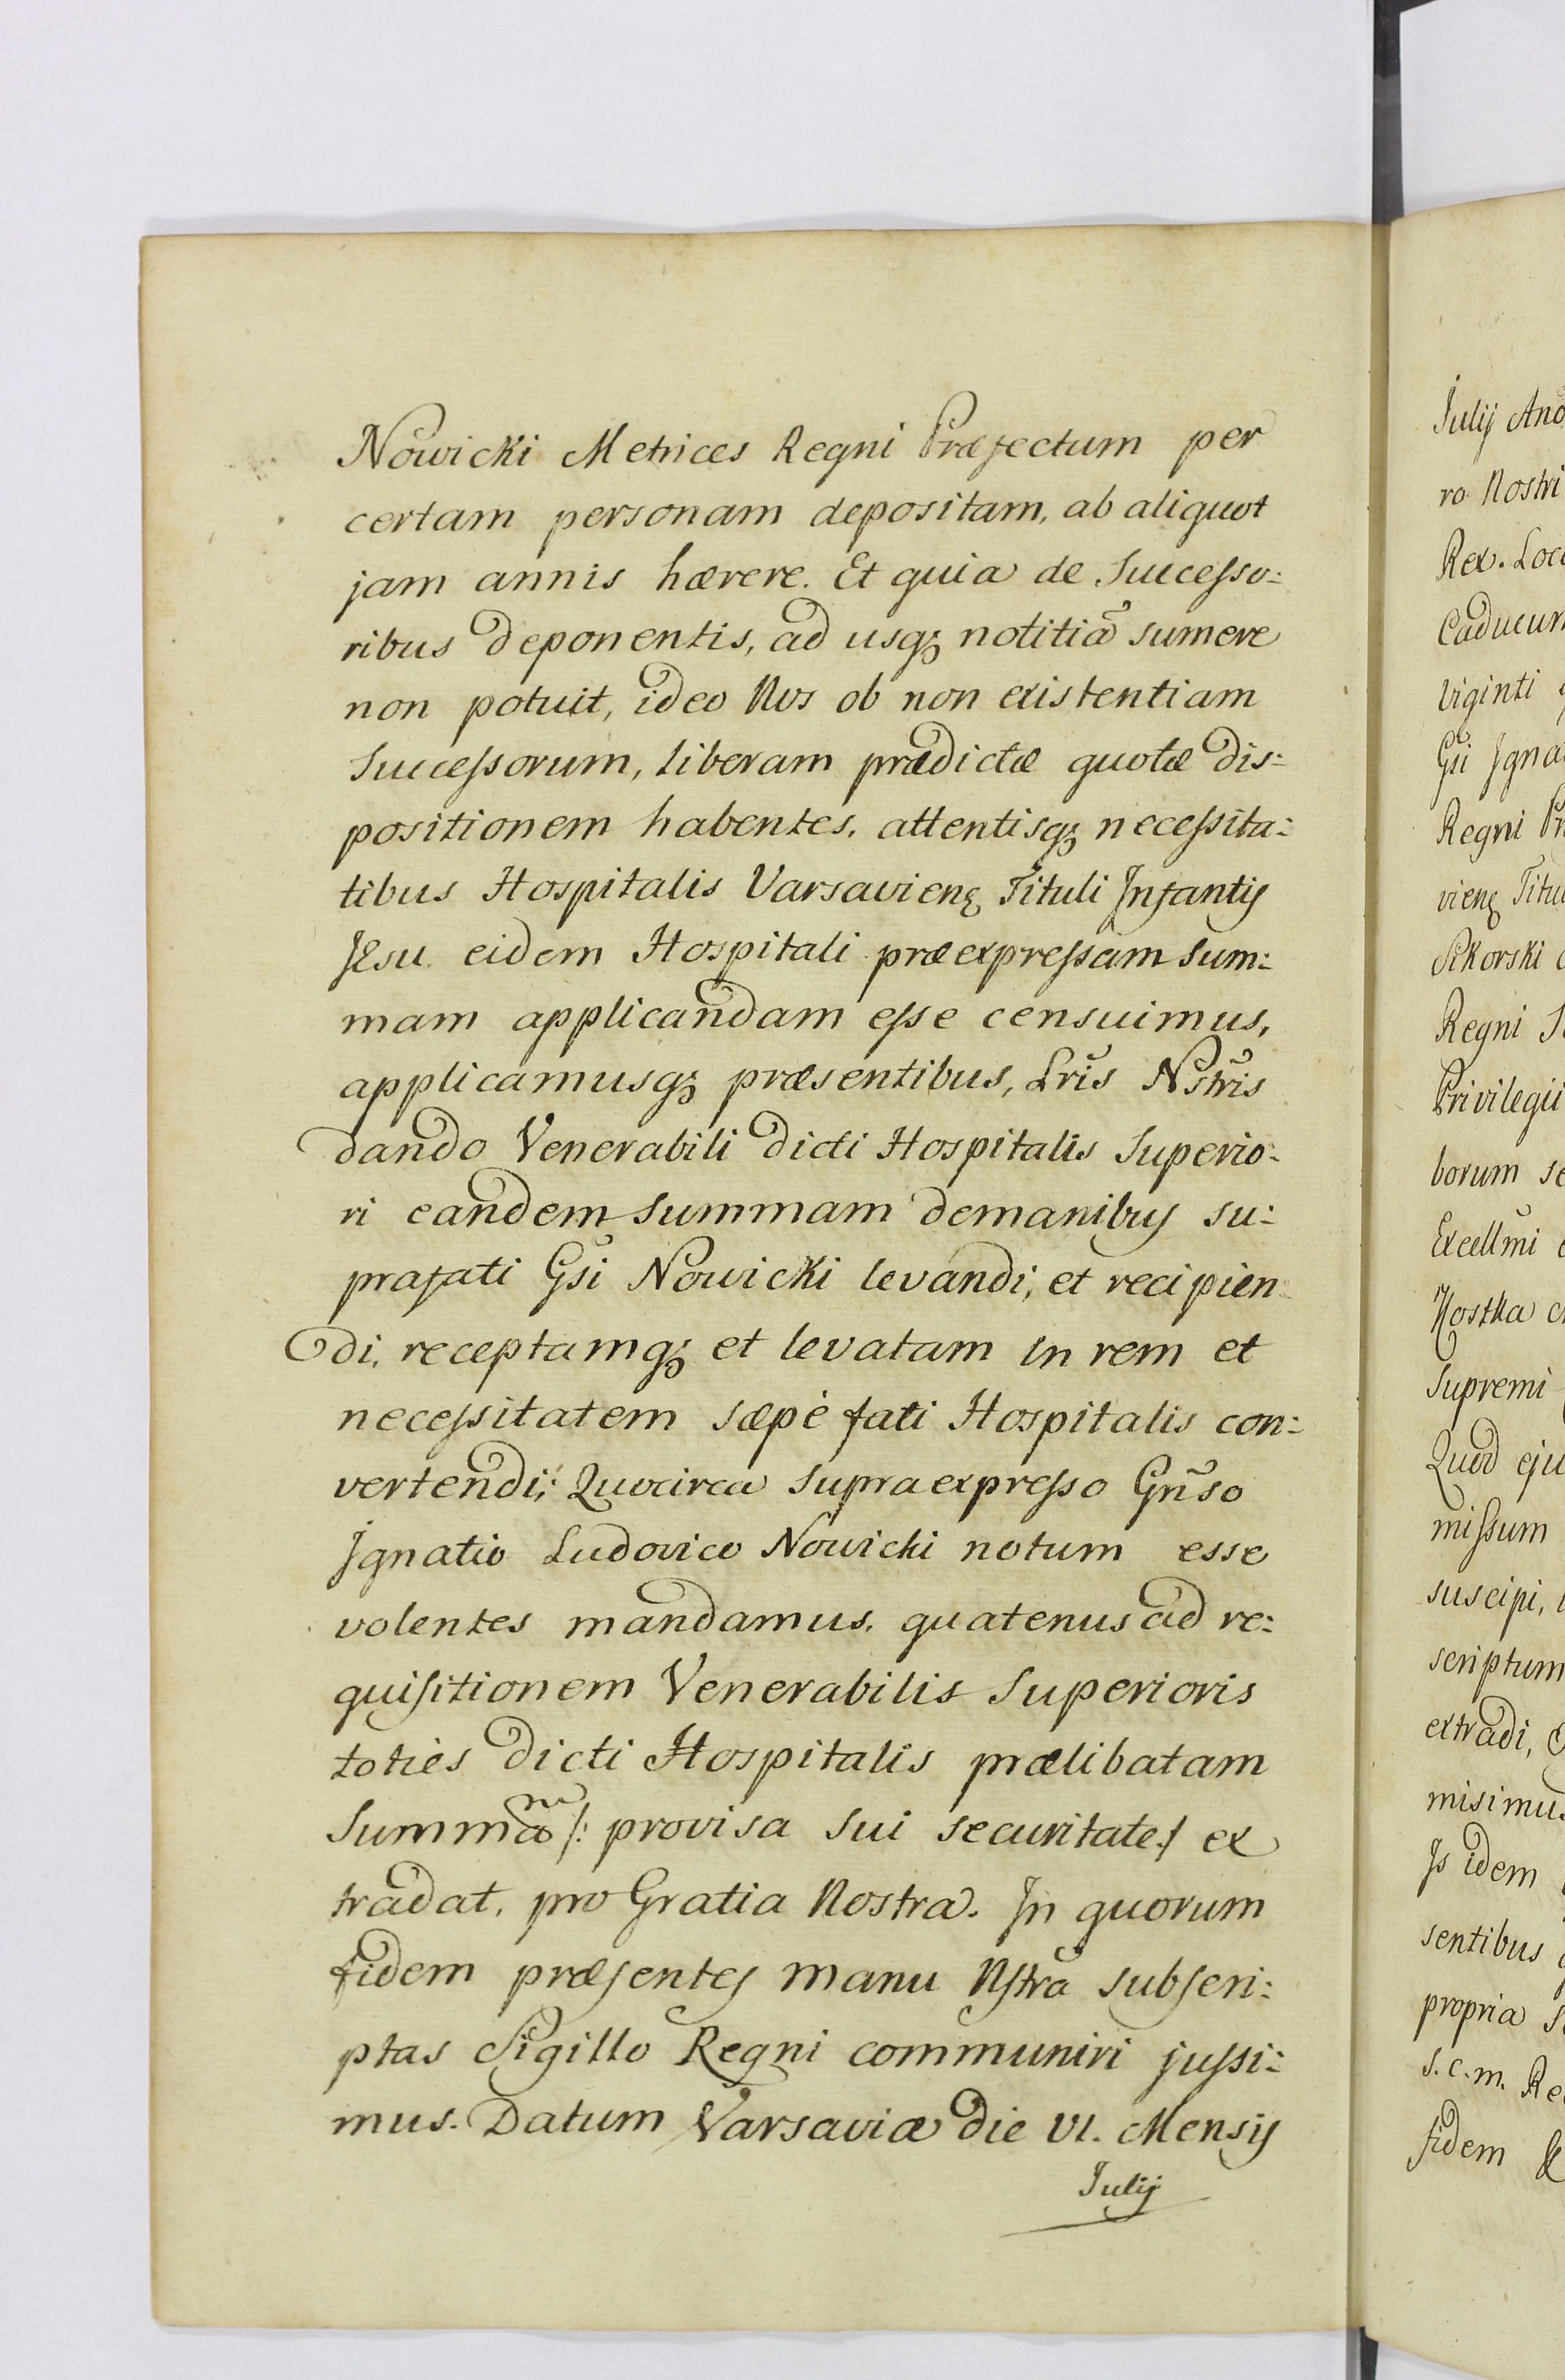 Nowicki Metrices Regni Præfectum per
certam personam depositam, ab aliquot
jam annis hærere. Et quia de Successo:
ribus deponentis, ad usq; notitiã sumere
non potuit, ideo Nos ob non existentiam
Successorum, liberam prædictæ quotæ dis:
positionem habentes, attentisq; necessita:
tibus Hospitalis Varsavieng Tituli Infantis
JEsu eidem Hospitali præexpressam sum:
mam applicandam esse censuimus,
applicamusq; præsentibus, Lris̃ Nstris̃
dando Venerabili dicti Hospitalis Superio:
ri eandem summam demanibus su:
prafati Gsi̇̃ Nowicki levandi, et recipien:
di, receptamq; et levatam in rem et
necessitatem sæpè fati Hospitalis con:
vertendi; Quocirca supraexpresso Gñso
Ignatio Ludovico Nowicki notum esse
volentes mandamus, quatenus ad re:
quisitionem Venerabilis Superioris
toties dicti Hospitalis prælibatam
Summam /: provisa sui securitate :/ ex
tradat, pro Gratia Nostra. In quorum
fidem præsentes manu Nstrã subscri:
ptas Sigillo Regni communiri jussi:
mus. Datum Varsaviæ die VI. Mensis
Julij
Julij
ro Nostri
Rex.
Caducum
Viginti
Gsi̇̃
Regni
vieng
Sikorski
Regni
Privilegii
borum
Excellm̃i
Kostka
Supremi
Quod
missum
suscipi,
scriptum
extradi,
misimus
Is idem
sentibus
propria
S.C.m.
fidem